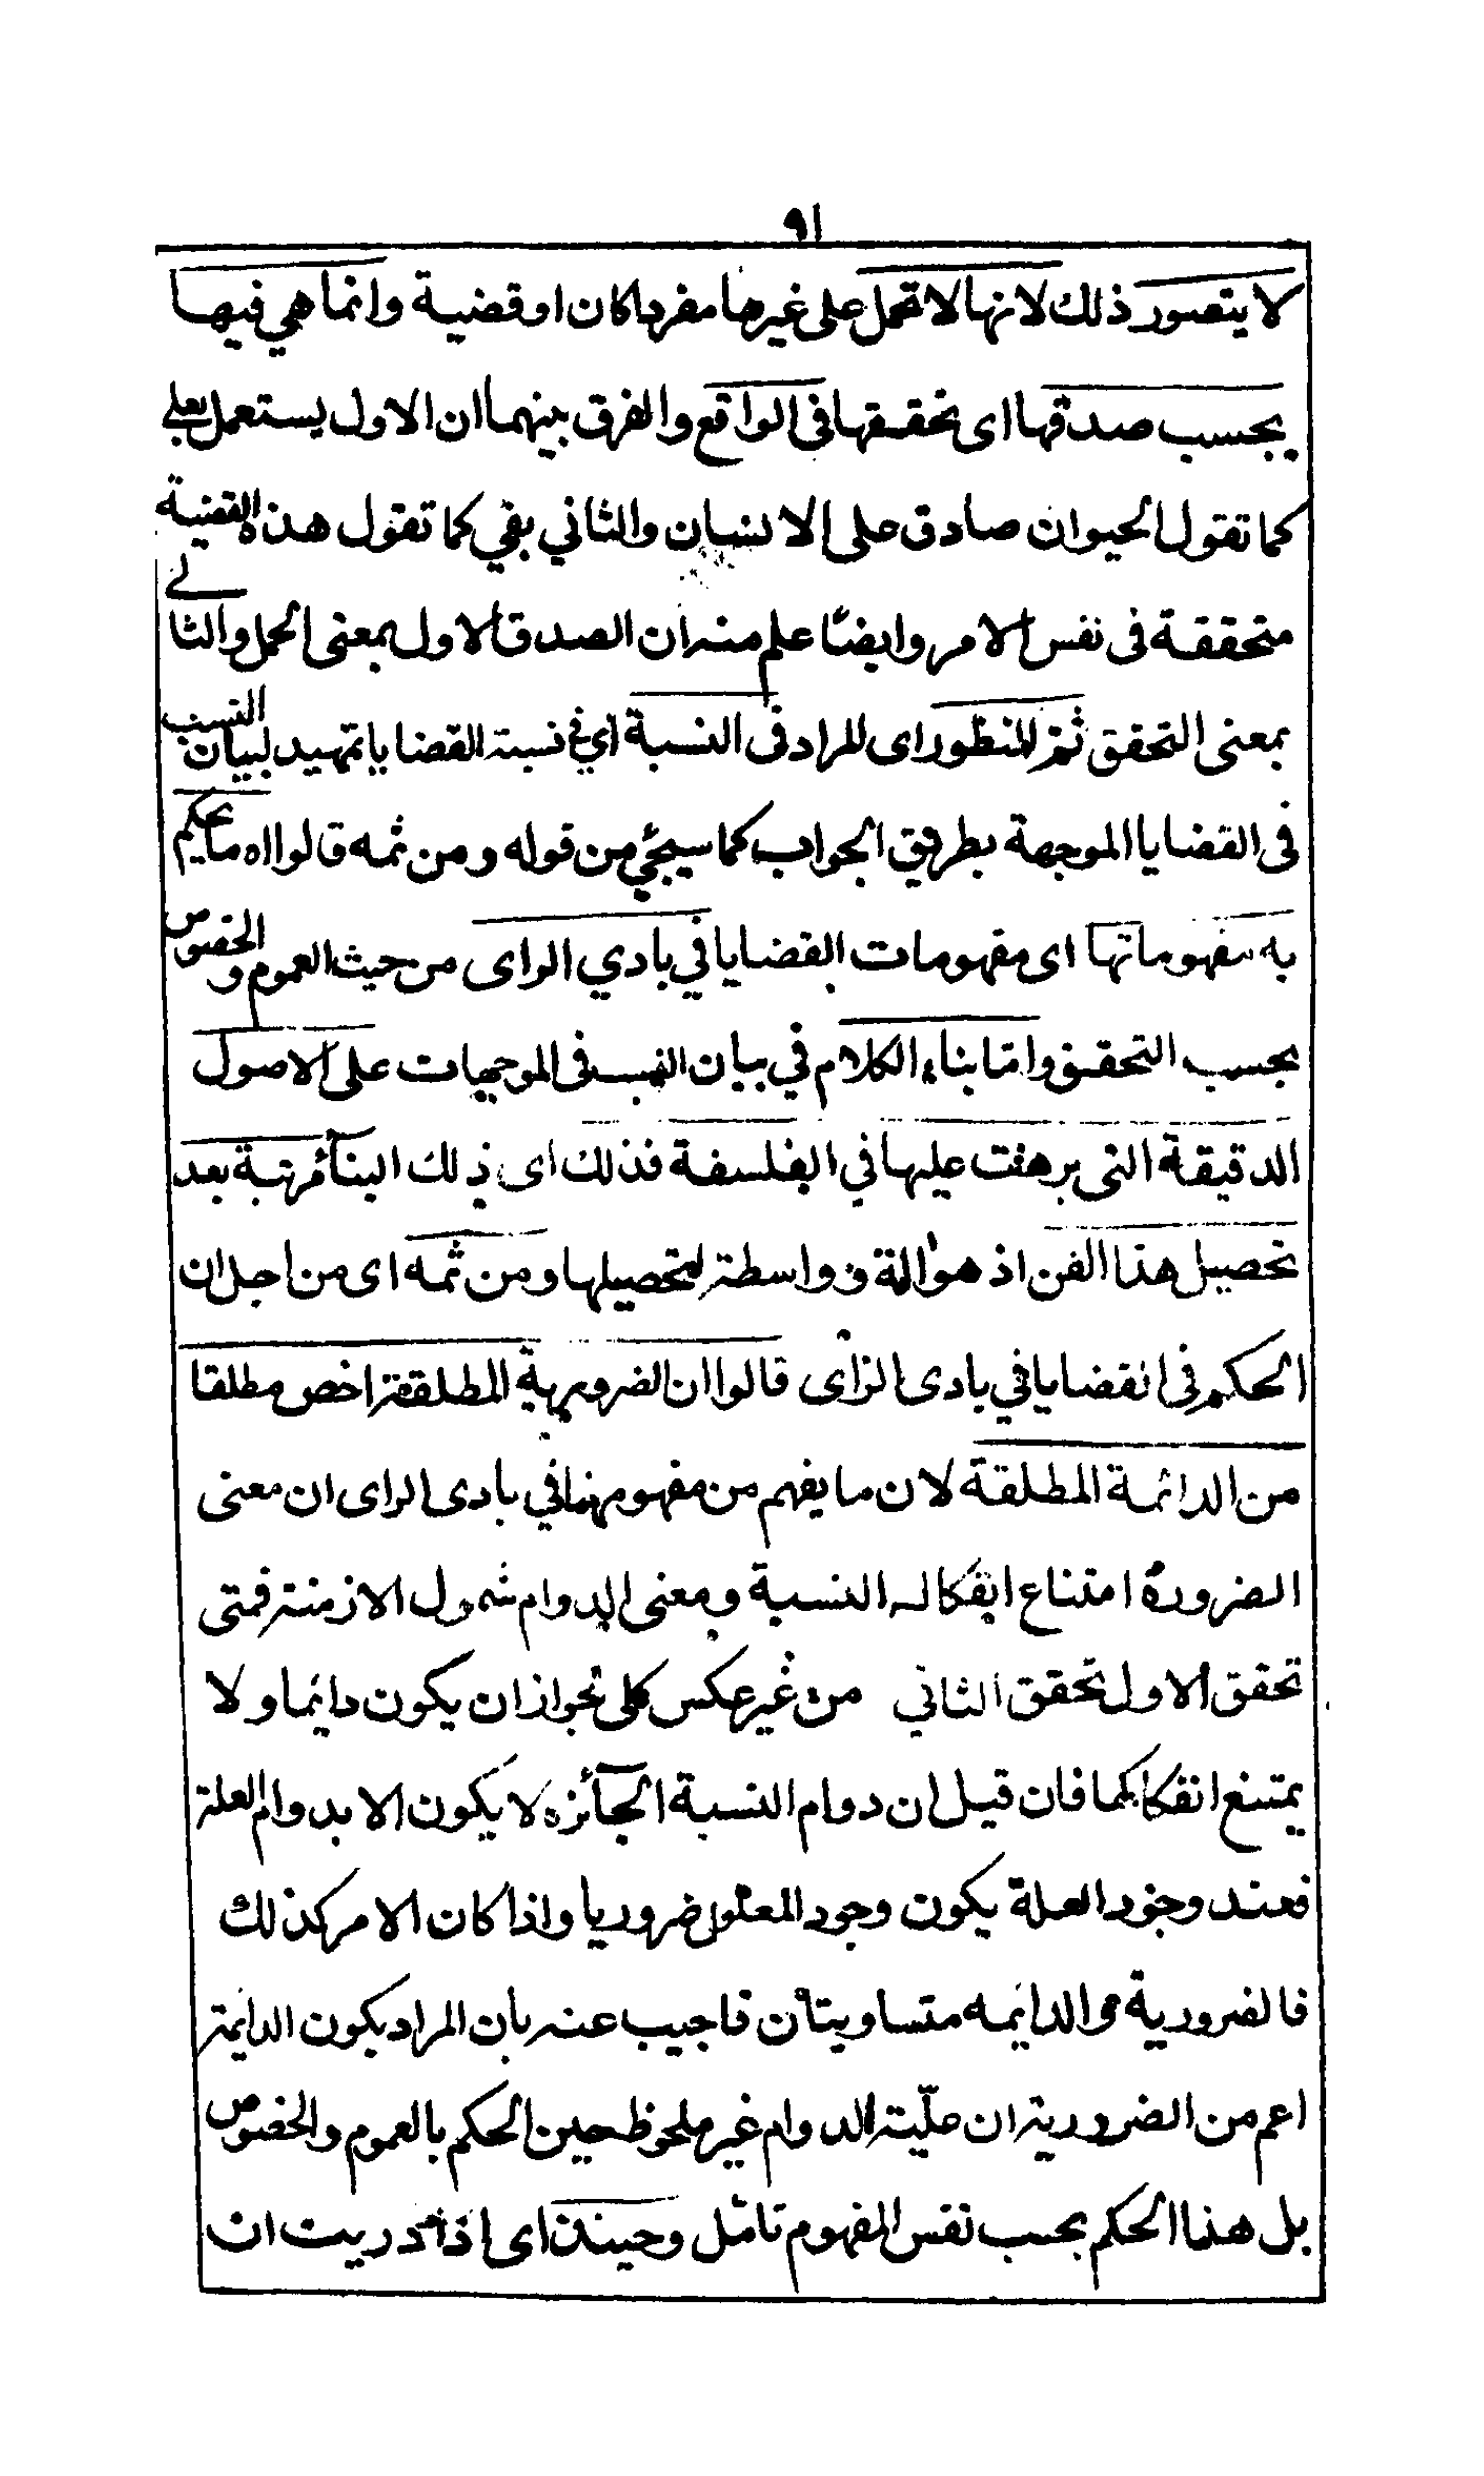 ٩١
لا يتصور ذلك لانها لا تحمل على غيرها مفردا كان او قضية وانما هي فيها
بحسب صدقها اى تحققها فى الواقع والفرق بينهما ان الاول يستعمل بعلى
كما تقول الحيوان صادق على الانسان والثاني بفي كما تقول هذه القضية
متحققة فى نفس الامر وايضًا علم منه ان الصدق الاول بمعنى الحمل والثانے
بمعنى التحقق ثم المنظور اى المراد فى النسبة اي في نسبة القضايا تمهيد لبيان النسب
فى القضايا الموجهة بطريق الجواب كما سيجئ من قوله ومن ثمه قالوا اه ما يحكم
به مفهوماتها اى مفهومات القضايا في بادي الراى من حيث العموم و الخصوص
بحسب التحقق وامّا بناء الكلام في بيان النسب فى الموجهات على الاصول
الدقيقة التى برهنت عليها في الفلسفة فذلك اى ذلك البنآء مرتبة بعد
تحصيل هذا الفن اذ هو الة و واسطة لتحصيلها ومن ثمه اى من اجل ان
الحكم فى القضايا في بادى الرأى قالوا ان الضرورية المطلقة اخص مطلقا
من الدائمة المطلقة لان ما يفهم من مفهومهما في بادى الراى ان معنى
الضرورة امتناع انفكاك النسبة ومعنى الدوام شمول الازمنة فمتى
تحقق الاول تحقق الثاني من غير عكس كلى لجواز ان يكون دائما ولا
يمتنع انفكاكها فان قيل ان دوام النسبة الجآئزه لا يكون الا بدوام العلة
فعند وجود العلة يكون وجود المعلول ضروريا واذا كان الامر كذلك
فالضرورية والدائمه متساويتان فاجيب عنه بان المراد بكون الدائمة
اعم من الضرورية ان علّية الدوام غير ملحوظ حين الحكم بالعموم والخصوص
بل هذا الحكم بحسب نفس المفهوم تامّل وحينئذ اى اذا دريت ان